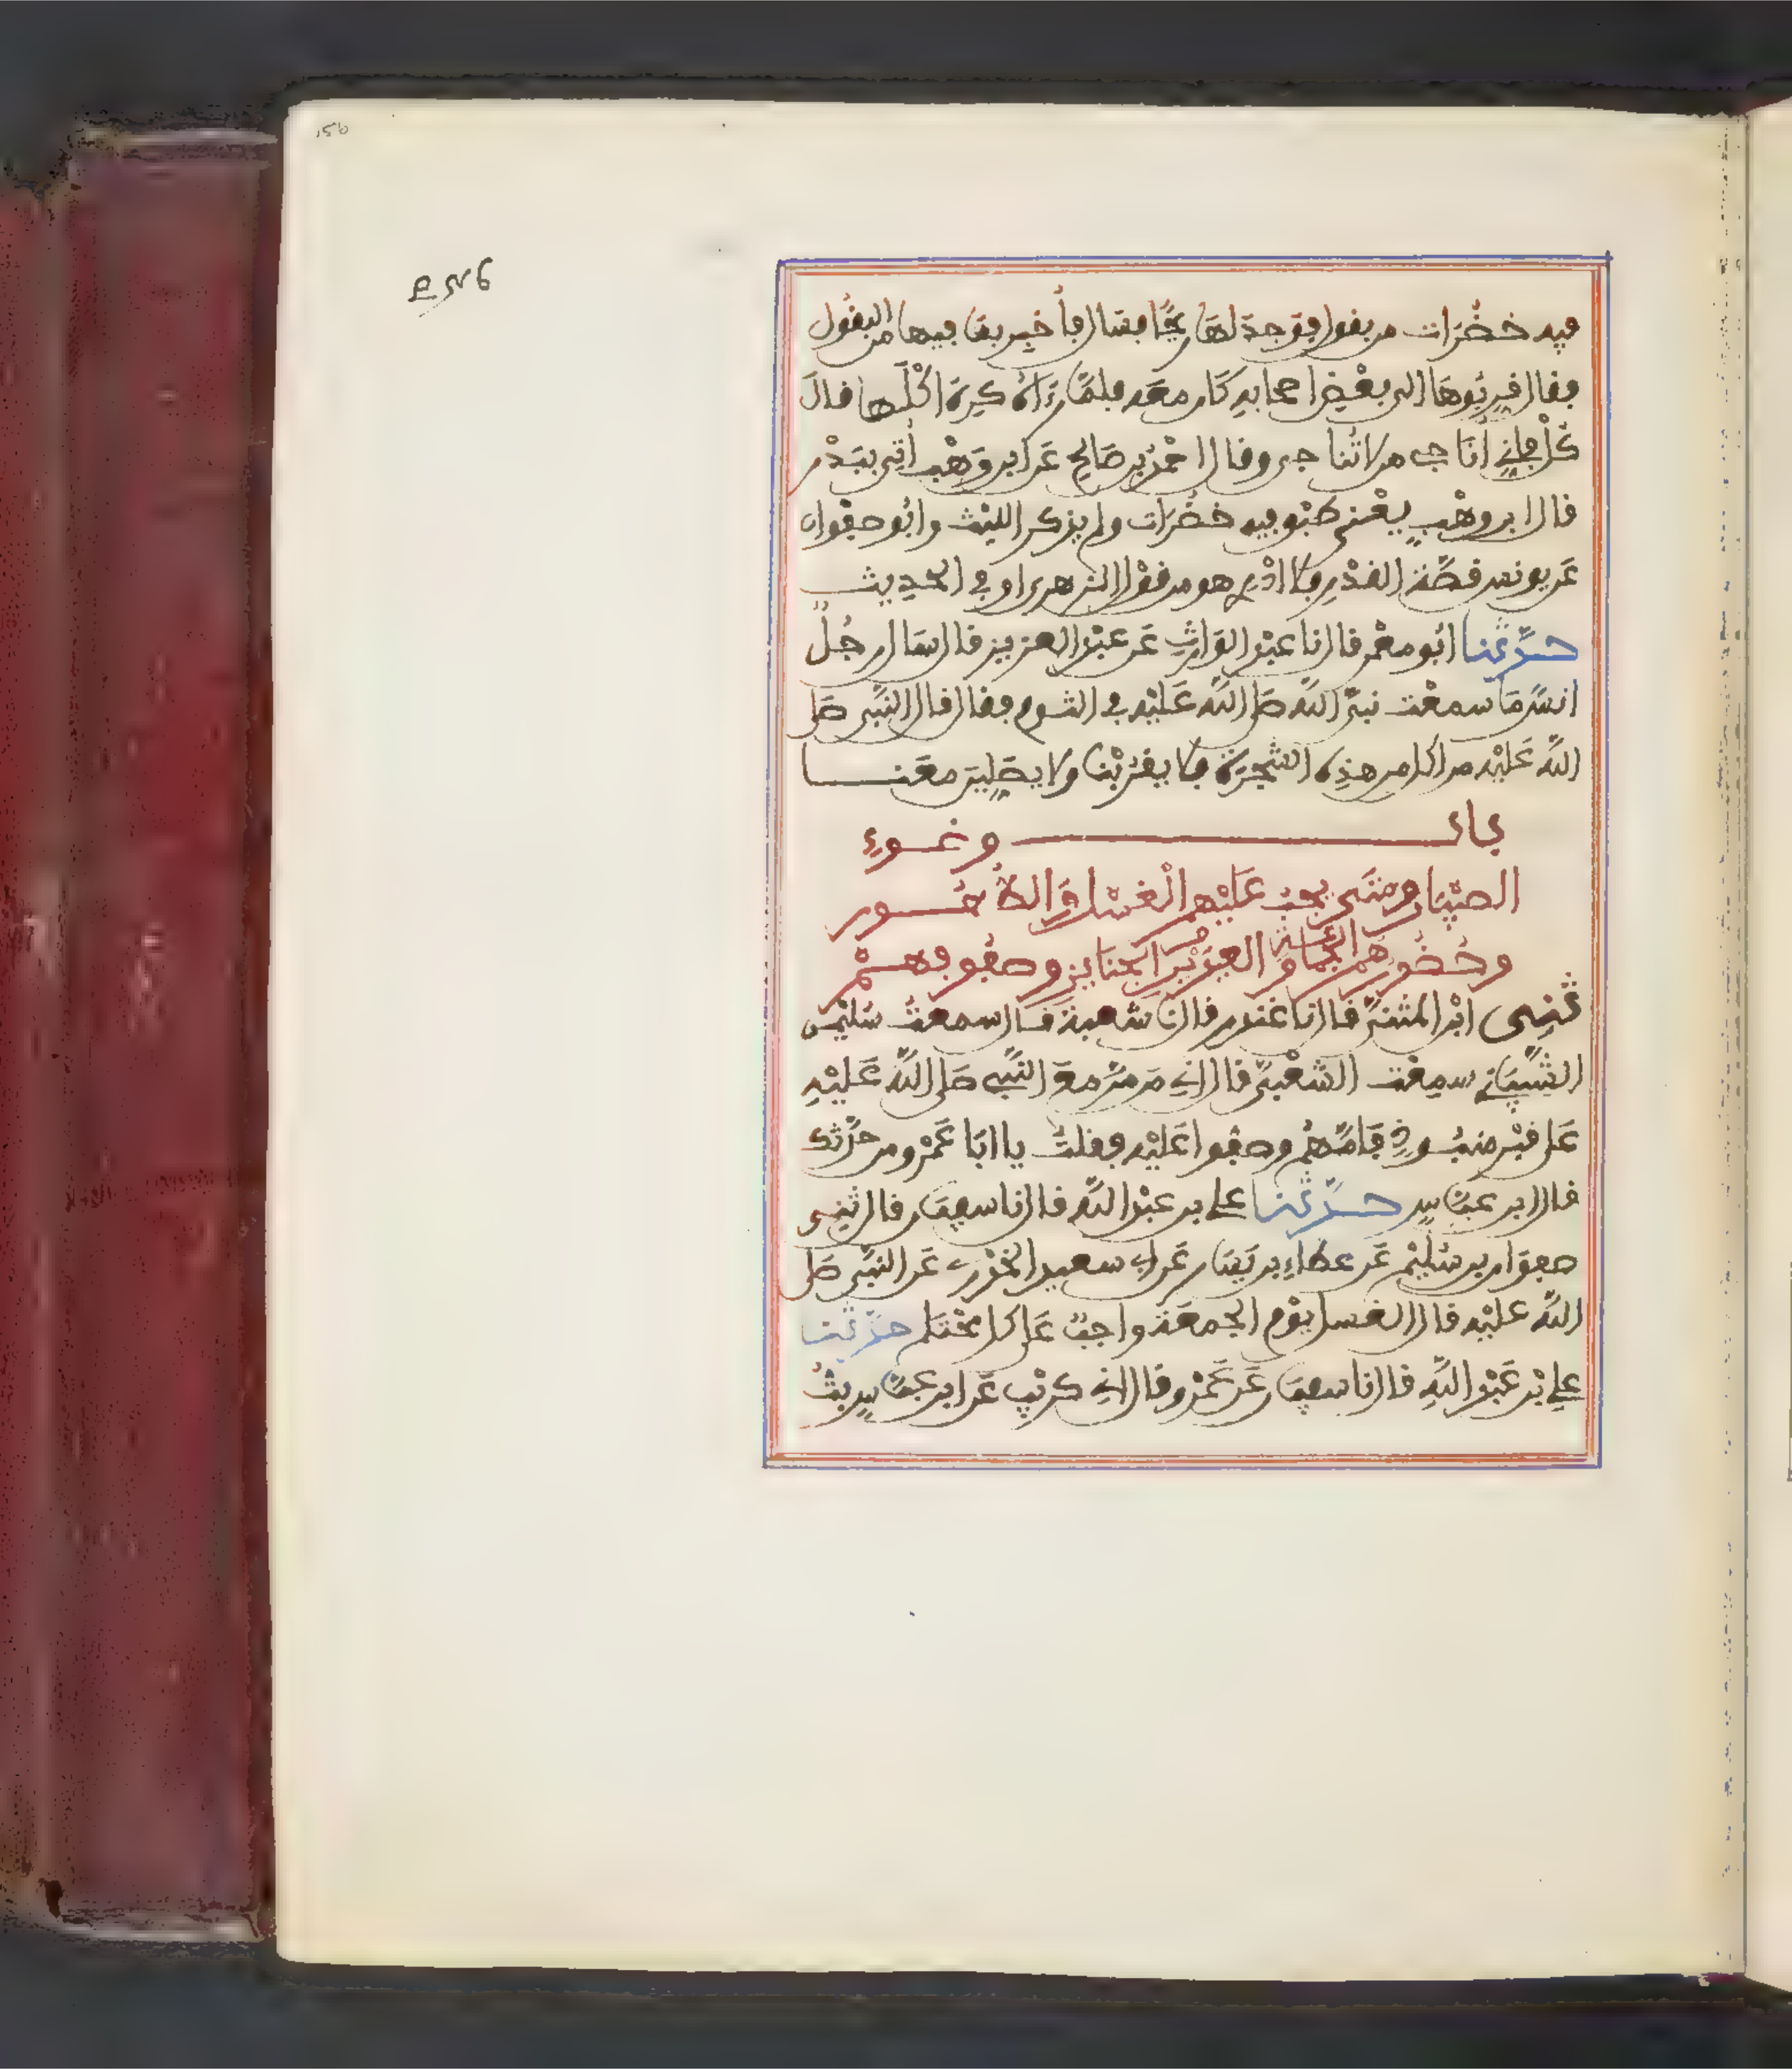 فيه خضرات من بقول فوجد لها ريحا فسال فأخبر بما فيها من البقول
فقال قربوها الى بعض اصحابه كان معه فلما رءاه كره اكلها قال
كل فإني أناجي من لا تناجي وقال احمد بن صالح عن ابن وهب أتي ببدر
قال ابن وهب يعني طبقا فيه خضرات ولم يذكر الليث وابو صفوان
عن يونس قصة القدر فلا ادري هو من قول الزهري او في الحديث
حدثنا ابو معمر قال نا عبد الوارث عن عبد العزيز قال سال رجل
انس ما سمعت نبي الله صلى الله عليه في الثوم فقال قال النبي صلى
الله عليه من اكل من هذه الشجرة فلا يقربنا ولا يصلين معنا
باب وضوء
الصبيان ومتى يجب عليهم الغسل والطهور
وحضورهم الجماعة والعيدين والجنايز وصفوفهم
ثني ابن المثنى قال نا غندر قال نا شعبة قال سمعت سليمن
الشيباني سمعت الشعبي قال اني من مر مع النبي صلى الله عليه
على قبر منبوذ فامهم وصفوا عليه فقلت يا ابا عمرو من حدثك
قال ابن عباس حدثنا علي بن عبد الله قال نا سفيان قال ثني
صفوان بن سليم عن عطاء بن يسار عن ابي سعيد الخدري عن النبي صلى
الله عليه قال الغسل يوم الجمعة واجب على كل محتلم حدثنا
علي بن عبد الله قال نا سفيان عن عمرو قال اني كريب عن ابن عباس بت